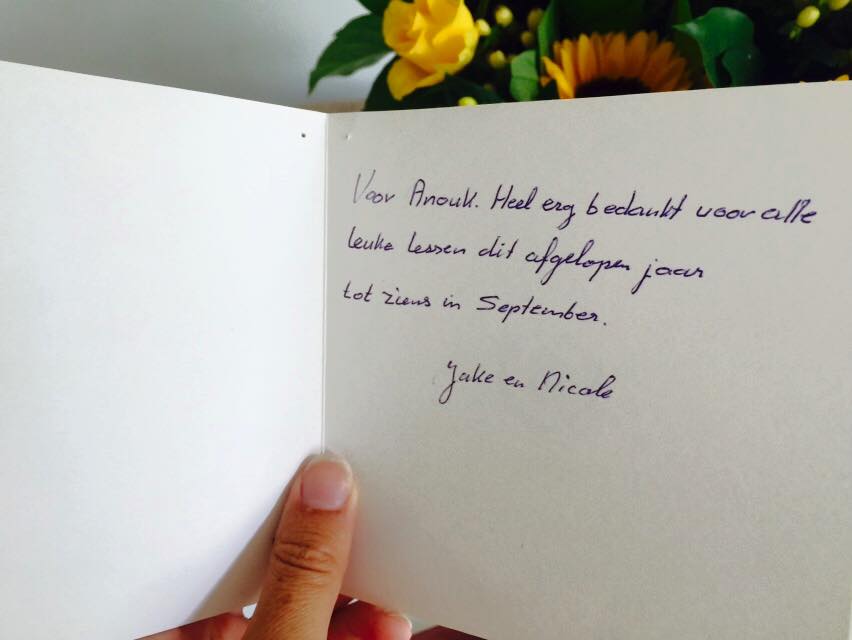 Voor Anouk. Heel erg bedankt voor alle
leuke lessen dit afgelopen jaar
tot ziens in September.
Jake en Nicole